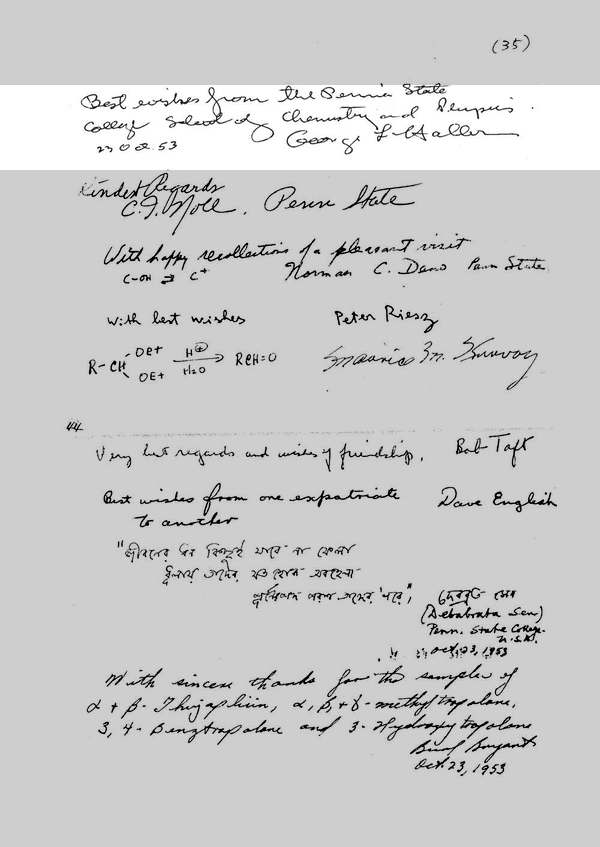 (35)
Best wishes from the Penna State
College School of Chemistry and Physics.
23 Oct. 53 George L. Haller
Kindest Regards
C. I. Noll. Penn State
With happy recollections of a pleasant visit
C-OH ⇄ C⁺ Norman C. Deno Penn State
With best wishes Peter Riesz
R-CH OEt OEt H⊕ H₂O → RCH=O
44
Very best regards and wishes of friendship. Bob Taft
Best wishes from one expatriate Dave English
to another
"জীবনের ধন কিছুই যাবে না ফেলা
ধূলায় তাদের যত হোক অবহেলা
পূর্ণের পদ পরশ তাদের 'পরে", দেবব্রত সেন
(Debabrata Sen)
Penn. State College.
U.S.A.
Oct 23, 1953
With sincere thanks for the samples of
α + β-Thujaplicin, α, β, + γ-methyl tropolone,
3, 4-Benztropolone and 3-Hydroxytropolone
Bryant
Oct. 23, 1953